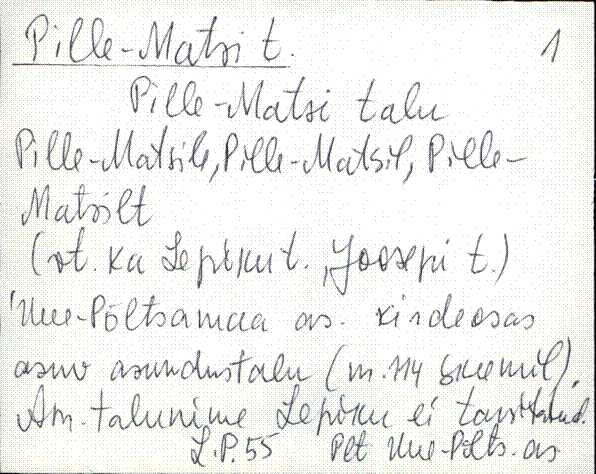 Pille-Matsi t. 1
Pille-Matsi talu
Pille-Matsile, Pille-Matsil, Pille-
Matsilt
(vt. ka Lepiku t., Joosepi t.)
Uue-Põltsamaa as. kirdeosas
asuv asundustalu (m. 114 skeemil).
Am. talunime Lepiku ei tarvitatud.
L.P. 55 Plt Uue-Põlts. as